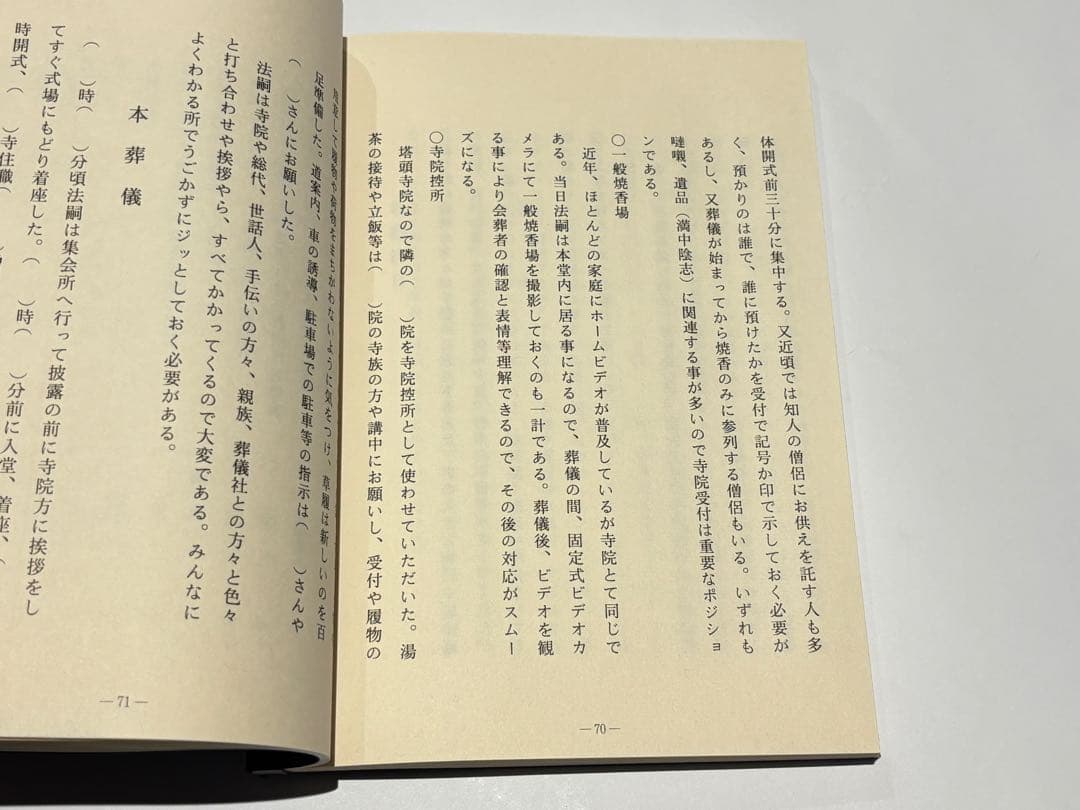 体開式前三十分に集中する。又近頃では知人の僧侶にお供えを託す人も多
く、預かりのは誰で、誰に預けたかを受付で記号か印で示しておく必要が
あるし、又葬儀が始まってから焼香のみに参列する僧侶もいる。いずれも
噠嚫、遺品（満中陰志）に関連する事が多いので寺院受付は重要なポジショ
ンである。
〇一般焼香場
近年、ほとんどの家庭にホームビデオが普及しているが寺院とて同じで
ある。当日法嗣は本堂内に居る事になるので、葬儀の間、固定式ビデオカ
メラにて一般焼香場を撮影しておくのも一計である。葬儀後、ビデオを観
る事により会葬者の確認と表情等理解できるので、その後の対応がスムー
ズになる。
〇寺院控所
塔頭寺院なので隣の（　　）院を寺院控所として使わせていただいた。湯
茶の接待や立飯等は（　　）院の寺族の方や講中にお願いし、受付や履物の
―70―
して履物や荷物をまちがわないように気をつけ、草履は新しいのを百
足準備した。道案内、車の誘導、駐車場での駐車等の指示は（　　）さんや
（　　）さんにお願いした。
法嗣は寺院や総代、世話人、手伝いの方々、親族、葬儀社との方々と色々
と打ち合わせや挨拶やら、すべてかかってくるので大変である。みんなに
よくわかる所でうごかずにジッとしておく必要がある。
本葬儀
（　　）時（　　）分頃法嗣は集会所へ行って披露の前に寺院方に挨拶をし
てすぐ式場にもどり着座した。（　　）時（　　）分前に入堂、着座、（
時開式、（　　）寺住職（
―71―